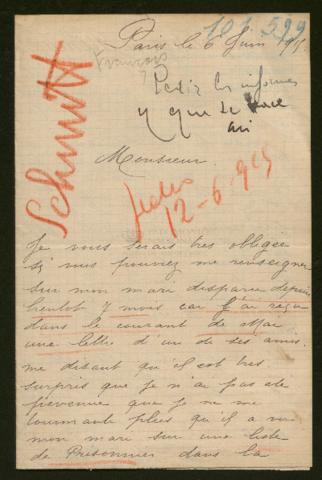 101.599
Paris le 6 Juin 1915
François
Pedir los informes
y que se hace
así
Schmitt
Monsieur
12-6-915
Je vous serais tres obligée
si vous pouvez me renseigner
sur mon mari disparu depuis
bientot 7 mois car j'ai reçu
dans le courant de Mai
une lettre d'un de ses amis
me disant qu'il est tres
surpris que je n'ai pas ete
prevenue que je ne me
tourmante plus qu'il a vu
mon mari sur une liste
de Prisonnier dans la